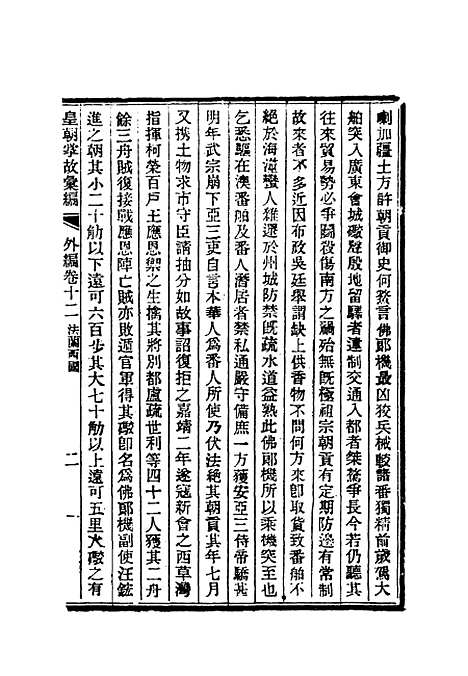 喇加疆土方許朝貢御史何鰲言佛郎機最凶狡兵械較諸番獨精前歲駕大
舶突入廣東會城礮聲殷地留驛者違制交通入都者桀驁爭長今若仍聽其
往來貿易勢必爭鬭殺傷南方之禍殆無旣極祖宗朝貢有定期防邊有常制
故來者不多近因布政吳廷舉謂缺上供香物不問何方來卽取貨致番舶不
絕於海澨蠻人雜遝於州城防禁旣疏水道益熟此佛郎機所以乘機突至也
乞悉驅在澳番舶及番人潛居者禁私通嚴守備庶一方獲安亞三侍帝驕甚
明年武宗崩下亞三吏自言本華人爲番人所使乃伏法絕其朝貢其年七月
又携土物求市守臣請抽分如故事詔復拒之嘉靖二年遂寇新會之西草灣
指揮柯榮百戶王應恩禦之生擒其將別都盧疏世利等四十二人獲其二舟
餘三舟賊復接戰應恩陣亡賊亦敗遁官軍得其礮卽名爲佛郎機副使汪鋐
進之朝其小二十觔以下遠可六百步其大七十觔以上遠可五里火礮之有
皇朝掌故彙編 外編卷十二 法蘭西國 二